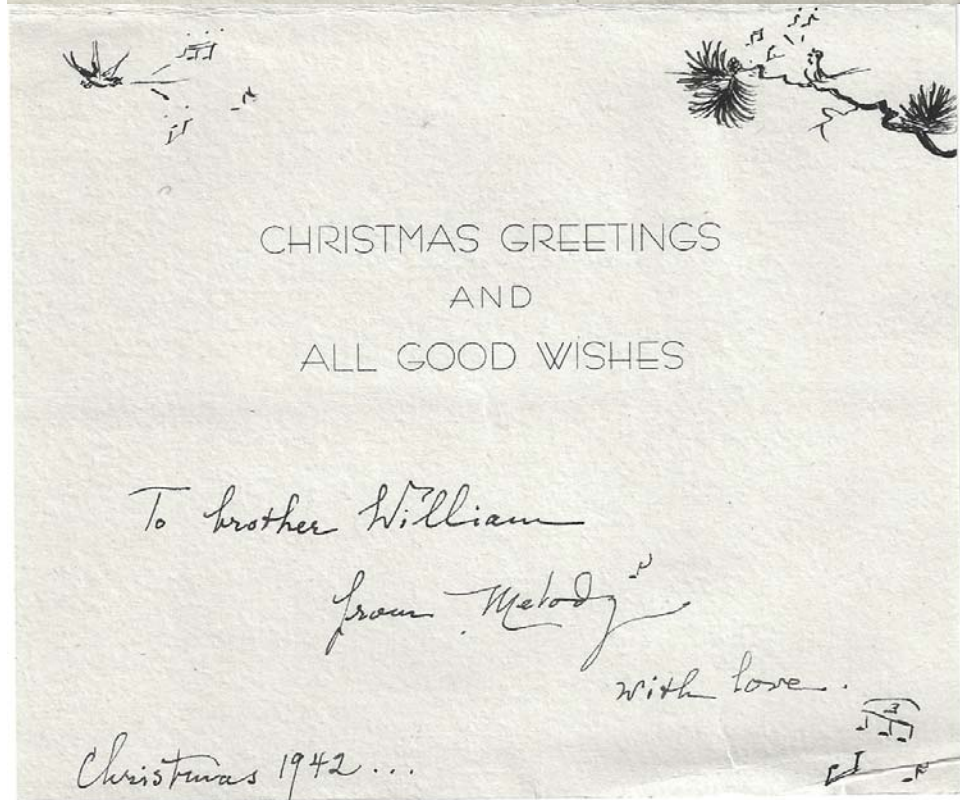 CHRISTMAS GREETINGS
AND
ALL GOOD WISHES
To brother William
from Melody
with love.
Christmas 1942...